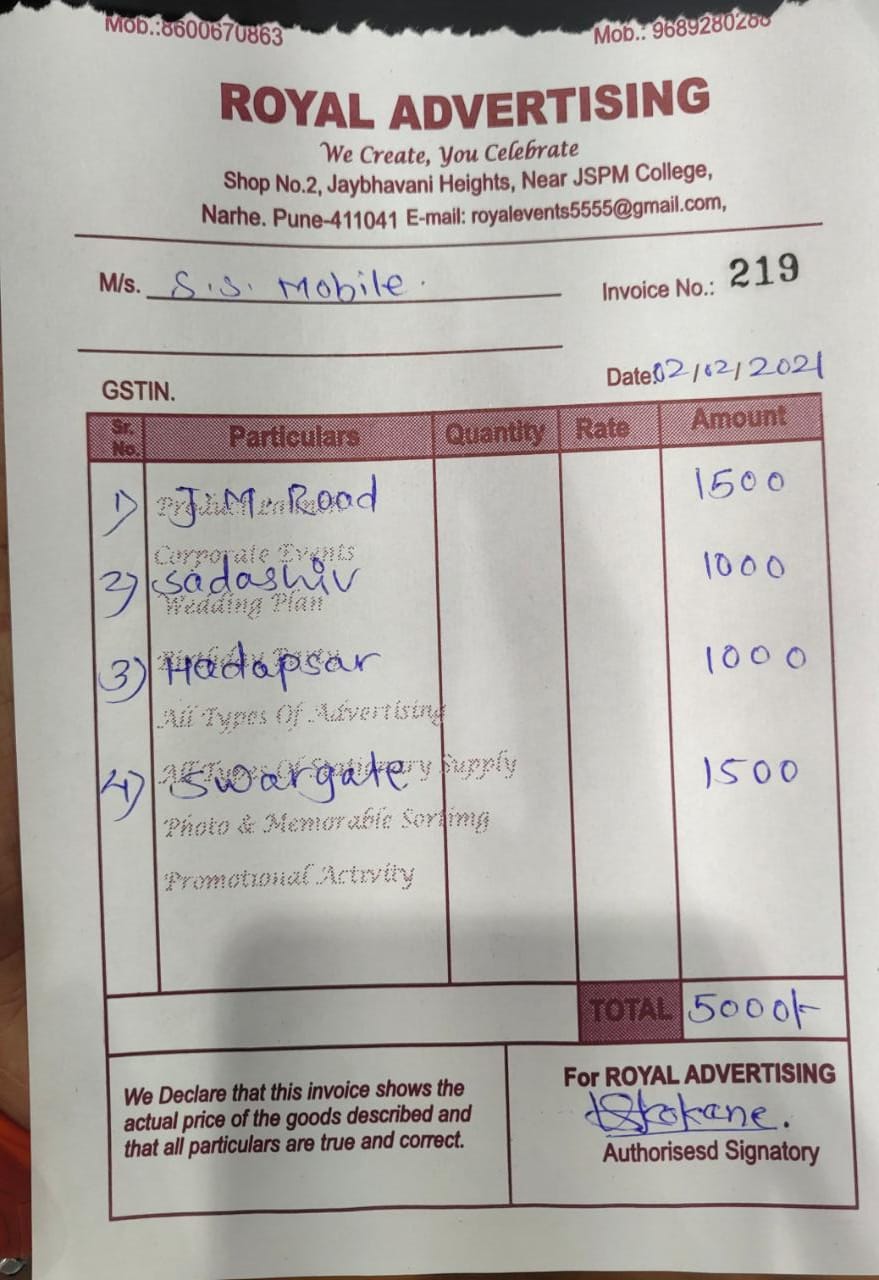 Mob.:8600670863 Mob.: 9689280288
ROYAL ADVERTISING
We Create, You Celebrate
Shop No.2, Jaybhavani Heights, Near JSPM College,
Narhe. Pune-411041 E-mail: royalevents5555@gmail.com,
M/s. S.S. Mobile. Invoice No.: 219
Date:02/02/2021
GSTIN.
Sr. No. Particulars Quantity Rate Amount
1) J.M. Road 1500
Corporate Events
2) Sadashiv 1000
Wedding Plan
3) Hadapsar 1000
All Types Of Advertising
4) Swargate 1500
All Types Of Supply
Photo & Memorable Sortimg
Promotional Activity
TOTAL 5000/-
We Declare that this invoice shows the
actual price of the goods described and
that all particulars are true and correct.
For ROYAL ADVERTISING
Authorisesd Signatory